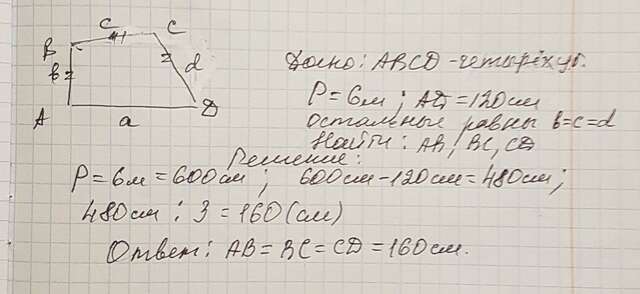 B c C
b d
A a D
Дано: ABCD - четырёхуг.
P = 6м ; АД = 120см
остальные равны b=c=d
Найти: AB, BC, CD
Решение:
P = 6м = 600см ; 600см - 120см = 480см ;
480см : 3 = 160 (см)
Ответ: AB = BC = CD = 160см.